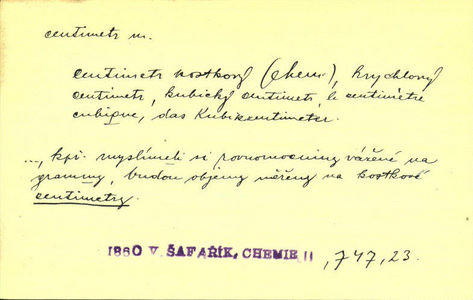 centimetr m.
centimetr kostkový (Chem), krychlový
centimetr, kubický centimetr, le centimètre
cubique, das Kubikcentimeter.
..., kpř. myslímeli si rovnomocniny vážené na
grammy, budou objemy měřeny na kostkové
centimetry.
1860 V. ŠAFAŘÍK, CHEMIE II , 747, 23.